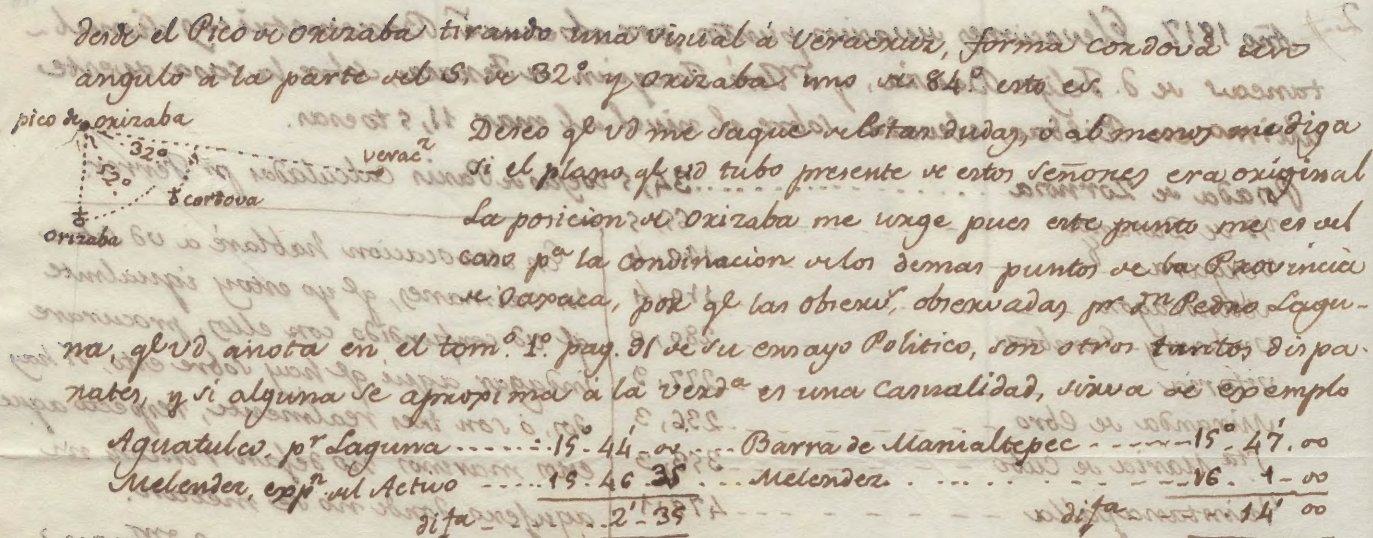 desde el Pico de Orizaba tirando una visual á Veracruz, forma Cordova
angulo à la parte del S. de 32.° y Orizaba uno de 84.° esto es.
pico de Orizaba
32°
52°
verac.z
cordova
Orizaba
Deseo q.e vd me saque de estas dudas, ò al menos me diga
si el plano, q.e vd tubo presente de estos señores era original
La posicion de Orizaba me urge pues este punto me es del
caso p.a la Condinacion de los demas puntos de la Provincia
de Oaxaca, por q.e las observ.s observadas p.r d.n Pedro Lagu-
na, q.e vd anota en el tom.o 1.o pag. 91 de su ensayo Politico, son otros tantos dispa-
rates, y si alguna se aproxima à la verd.a es una Casualidad, sirva de exemplo
Aguatulco, p.r Laguna ------- 15.° 44.' 00" --- Barra de Manialtepec ------ 15.° 47.' 00
Melendez, exp.n del Activo ---- 15. 46. 35 --- Melendez. ---------- 16. 1 - 00
dif.a ------ 2' - 35 dif.a --- 14' 00